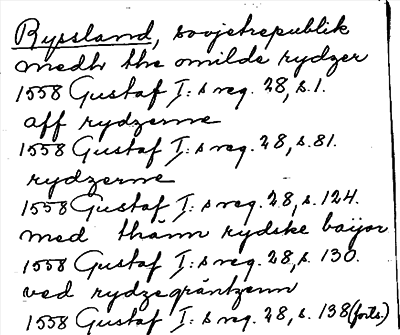 Ryssland, sovjetrepublik
medh the omilde rydzer
1558 Gustaf I:s reg. 28, s. 1.
aff rydzerne
1558 Gustaf I:s reg. 28, s. 81.
rydzerne
1558 Gustaf I:s reg. 28, s. 124.
med thänn rydske baijor
1558 Gustaf I:s reg. 28, s. 130.
ved rydzegräntzenn
1558 Gustaf I:s reg. 28, s. 138 (forts.)